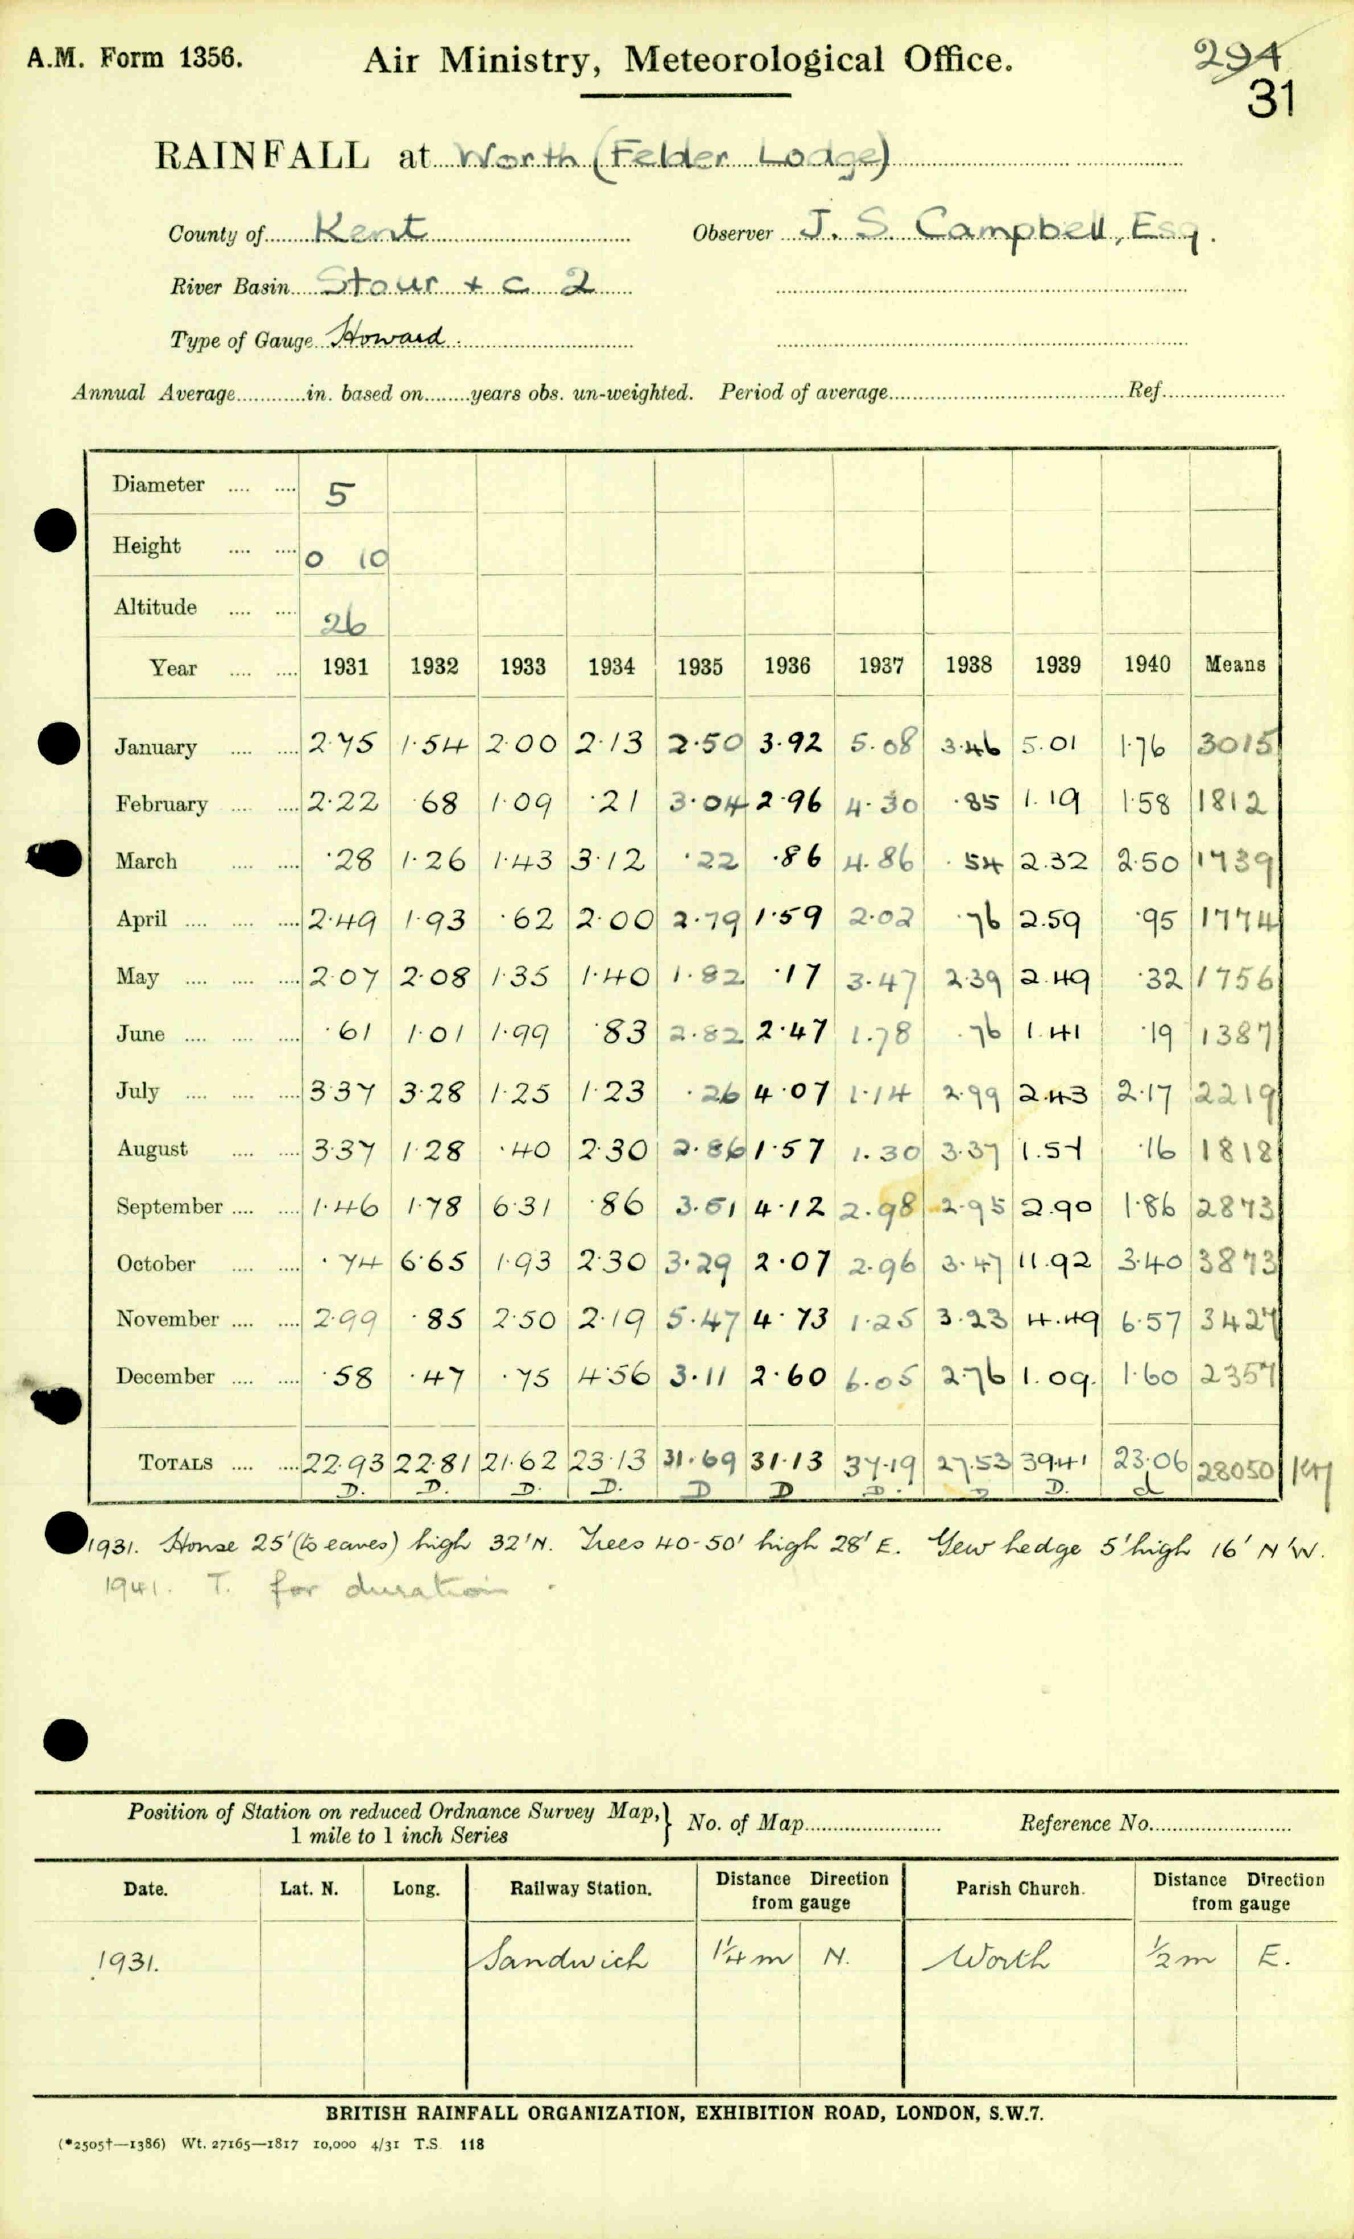 A.M. Form 1356. Air Ministry, Meteorological Office. 294
31
RAINFALL at Worth (Felder Lodge)
County of Kent Observer J. S. Campbell, Esq.
River Basin Stour + c 2
Type of Gauge Howard.
Annual Average in. based on years obs. un-weighted. Period of average Ref.
Diameter 5
Height 0 10
Altitude 26
Year 1931 1932 1933 1934 1935 1936 1937 1938 1939 1940 Means
January 2.75 1.54 2.00 2.13 2.50 3.92 5.08 3.46 5.01 1.76 3015
February 2.22 .68 1.09 .21 3.04 2.96 4.30 .85 1.19 1.58 1812
March .28 1.26 1.43 3.12 .22 .86 4.86 .54 2.32 2.50 1739
April 2.49 1.93 .62 2.00 2.79 1.59 2.02 .76 2.59 .95 1774
May 2.07 2.08 1.35 1.40 1.82 .17 3.47 2.39 2.49 .32 1756
June .61 1.01 1.99 .83 2.82 2.47 1.78 .76 1.41 .19 1387
July 3.37 3.28 1.25 1.23 .26 4.07 1.14 2.99 2.43 2.17 2219
August 3.37 1.28 .40 2.30 2.86 1.57 1.30 3.37 1.57 .16 1818
September 1.46 1.78 6.31 .86 3.51 4.12 2.98 2.95 2.90 1.86 2873
October .74 6.65 1.93 2.30 3.29 2.07 2.96 3.47 11.92 3.40 3873
November 2.99 .85 2.50 2.19 5.47 4.73 1.25 3.23 4.49 6.57 3427
December .58 .47 .75 4.56 3.11 2.60 6.05 2.76 1.09. 1.60 2357
TOTALS 22.93 22.81 21.62 23.13 31.69 31.13 37.19 27.53 39.41 23.06 28050
D. D. D. D. D D D. D D. d
1931. House 25' (to eaves) high 32' N. Trees 40-50' high 28' E. Yew hedge 5' high 16' N'W.
1941. T. for duration.
Position of Station on reduced Ordnance Survey Map,} No. of Map Reference No.
1 mile to 1 inch Series
Date. Lat. N. Long. Railway Station. Distance Direction from gauge Parish Church. Distance Direction from gauge
1931. Sandwich 1¼ m N. Worth ½ m E.
BRITISH RAINFALL ORGANIZATION, EXHIBITION ROAD, LONDON, S.W.7.
(*2505†—1386) Wt. 27165—1817 10,000 4/31 T.S. 118